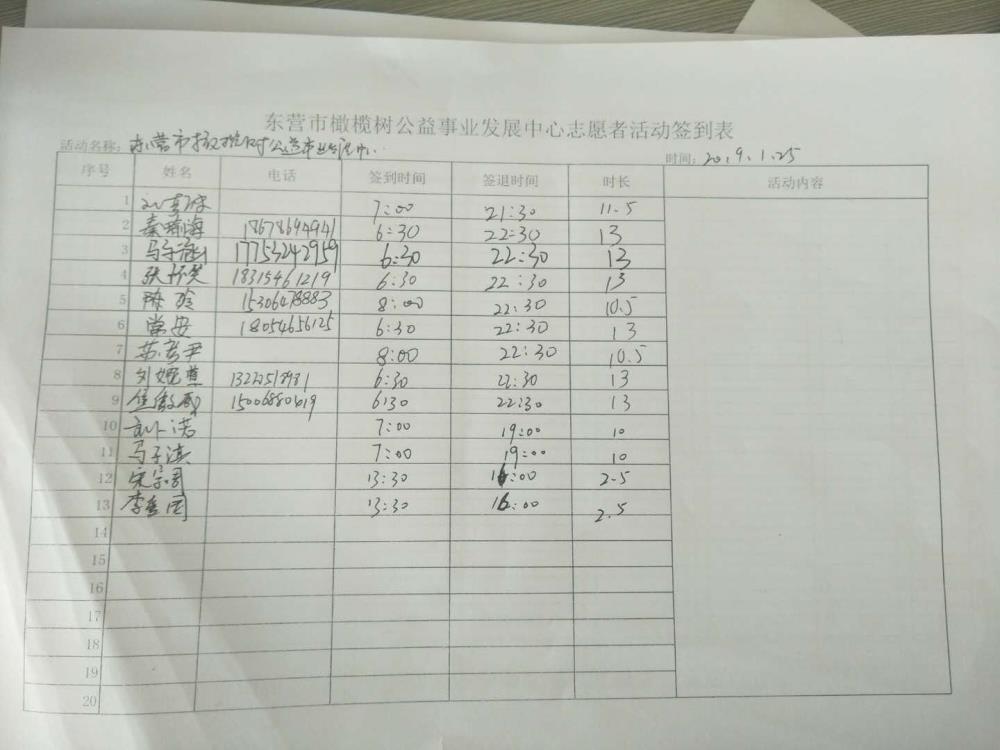 东营市橄榄树公益事业发展中心志愿者活动签到表
活动名称：东营市橄榄树公益事业发展中心 时间：2019.1.25
序号 姓名 电话 签到时间 签退时间 时长 活动内容
1 7:00 21:30 11.5
2 秦 海 18678694941 6:30 22:30 13
3 马子涵 17753242959 6:30 22:30 13
4 张 18315461219 6:30 22:30 13
5 陈玲 15306478883 8:00 22:30 10.5
6 常安 18054656125 6:30 22:30 13
7 苏 尹 8:00 22:30 10.5
8 刘婉 13222518981 6:30 22:30 13
9 15006880619 6:30 22:30 13
10 诺 7:00 19:00 10
11 马子淇 7:00 19:00 10
12 宋宗周 13:30 16:00 2.5
13 李 13:30 16:00 2.5
14
15
16
17
18
19
20